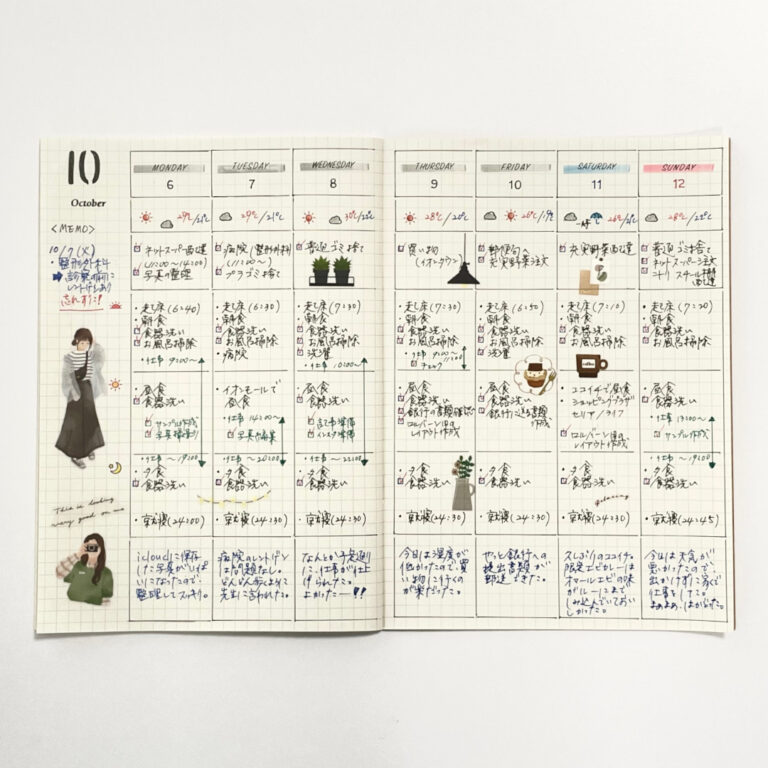 10
October
<MEMO>
10/7(火)
・整形外科
忘れずに!
This is looking
very good on me
MONDAY
6
29℃/21℃
・ネットスーパー配達
(12:00~14:00)
写真の整理
・起床(6:40)
・朝食
食器洗い
お風呂掃除
・仕事 9:00~
・昼食
食器洗い
サンプル作成
・仕事 ~19:00
・夕食
食器洗い
・就寝(24:00)
icloudに保存
した写真がいっぱ
いになったので
整理してスッキリ。
TUESDAY
7
29℃/21℃
・病院(整形外科)
(11:00~)
プラゴミ捨て
・起床(6:30)
・朝食
食器洗い
お風呂掃除
・病院
・イオンモールで
昼食
・仕事 14:00~
写真編集
・仕事 ~20:00
・夕食
食器洗い
・就寝(24:30)
病院のレントゲン
は問題なし。
先生に言われた。
WEDNESDAY
8
30℃/22℃
普通ゴミ捨て
・起床(7:30)
・朝食
食器洗い
お風呂掃除
洗濯
・仕事 10:00~
・昼食
食器洗い
インスタ準備
・仕事 ~22:00
・夕食
食器洗い
・就寝(24:30)
なんとか予定通り
に、仕事が仕上
げられた。
よかったー!!
THURSDAY
9
28℃/20℃
買い物
(イオンタウン)
・起床(7:30)
・朝食
食器洗い
お風呂掃除
・仕事 9:00~
・昼食
食器洗い
銀行の書類確認
レイアウト作成
・夕食
食器洗い
・就寝(24:30)
今日は湿度が
低かったので、買
い物に行くの
が楽だった。
FRIDAY
10
26℃/19℃
郵便局へ
充実野菜注文
・起床(6:40)
・朝食
食器洗い
お風呂掃除
洗濯
・昼食
食器洗い
銀行に送る書類
作成
・夕食
食器洗い
・就寝(24:30)
やっと銀行への
提出書類が
郵送できた。
SATURDAY
11
26℃/21℃
充実野菜配達
・起床(7:10)
・朝食
食器洗い
お風呂掃除
Coffee
・ココイチで昼食
・ショッピングプラザ
・セリア/ライフ
レイアウト作成
・夕食
食器洗い
relaxing
・就寝(24:30)
久しぶりのココイチ。
限定エビカレーは
オマールエビの味
がルーにまで
しみ込んでいておい
しかった。
SUNDAY
12
28℃/22℃
普通ゴミ捨て
ネットスーパー注文
・起床(7:20)
・朝食
食器洗い
お風呂掃除
・昼食
食器洗い
・仕事 13:00~
サンプル作成
・仕事 ~19:00
・夕食
食器洗い
・就寝(24:45)
今日は天気が
悪かったので、
出かけずに家で
仕事をした。